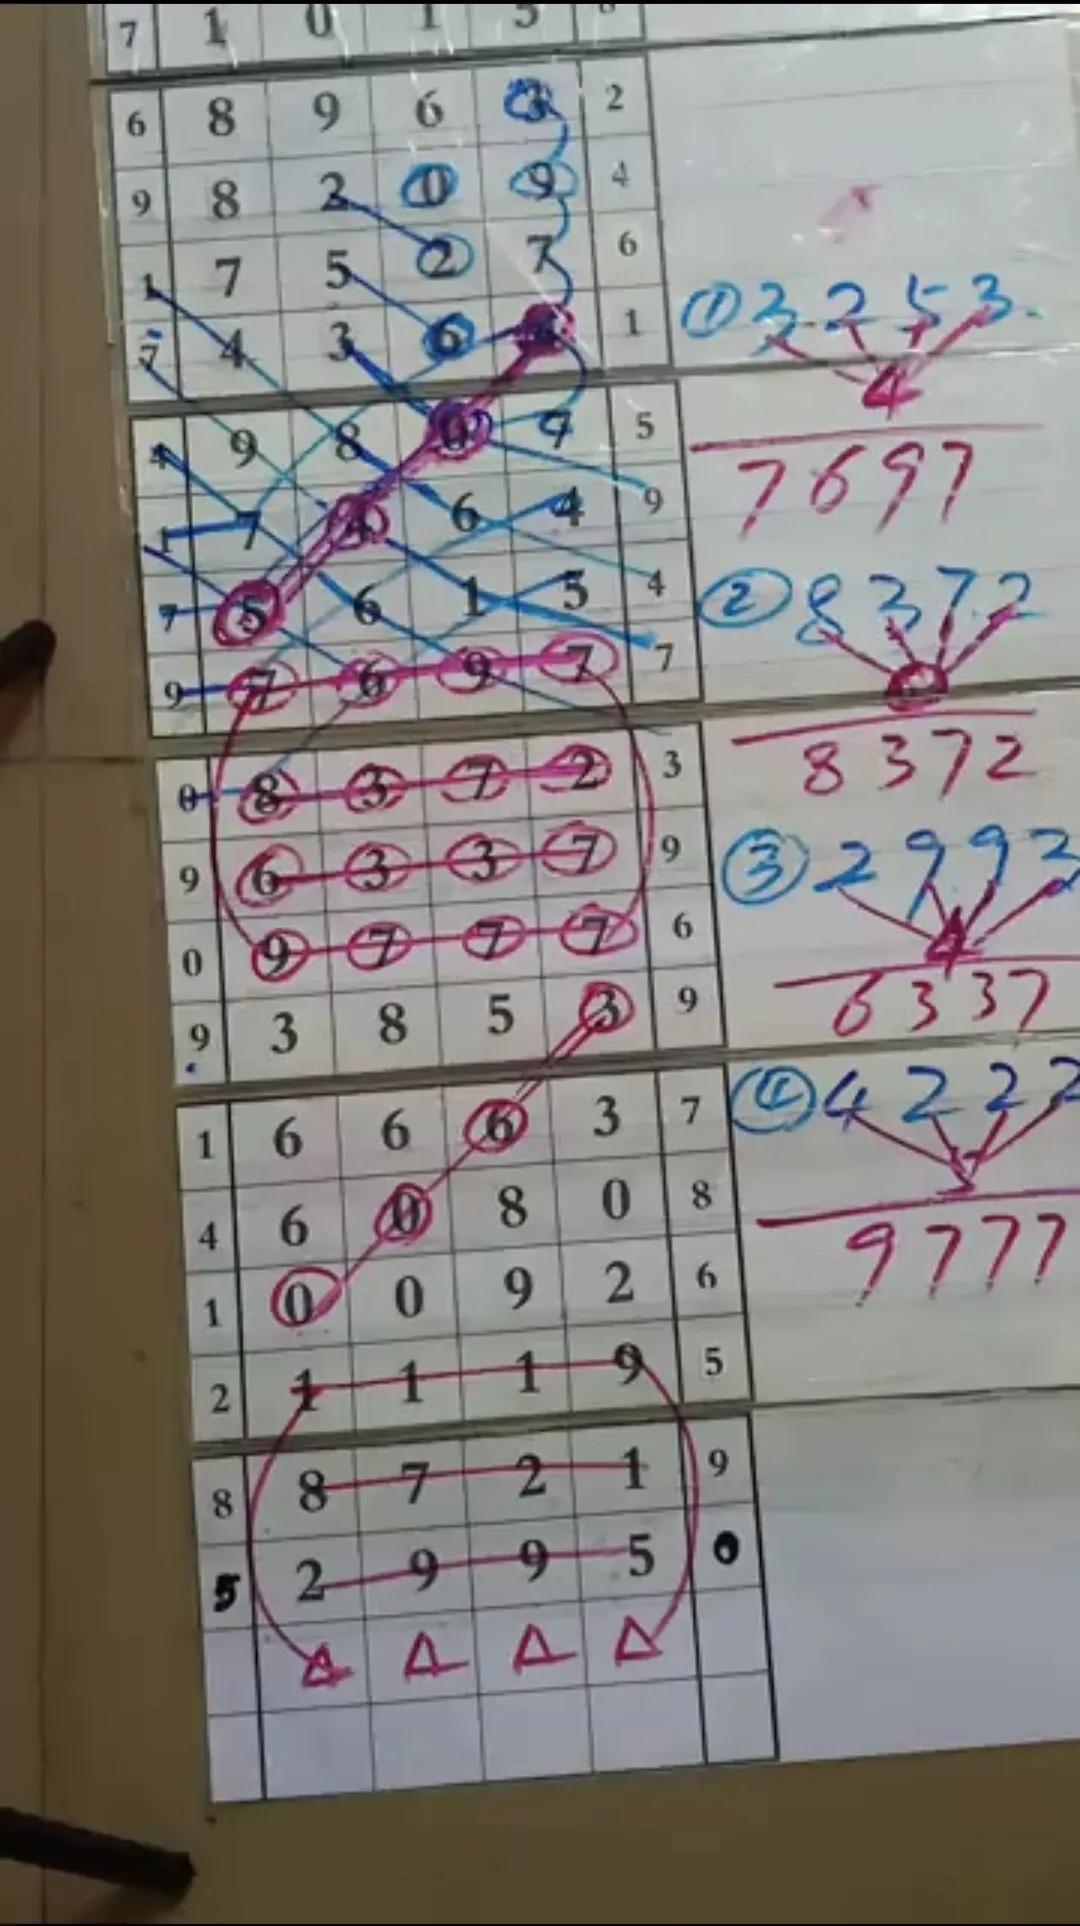 7 1 0 1 5
6 8 9 6 3 2
9 8 2 0 9 4
1 7 5 2 7 6
7 4 3 6 4 1
4 9 8 0 9 5
1 7 4 6 4 9
7 5 6 1 5 4
9 7 6 9 7 7
0 8 3 7 2 3
9 6 3 3 7 9
0 9 7 7 7 6
9 3 8 5 3 9
1 6 6 6 3 7
4 6 0 8 0 8
1 0 0 9 2 6
2 1 1 1 9 5
8 8 7 2 1 9
5 2 9 9 5 0
① 3 2 5 3
4
7 6 9 7
② 8 3 7 2
8 3 7 2
③ 2 9 9 3
4
6 3 3 7
④ 4 2 2 2
5
9 7 7 7